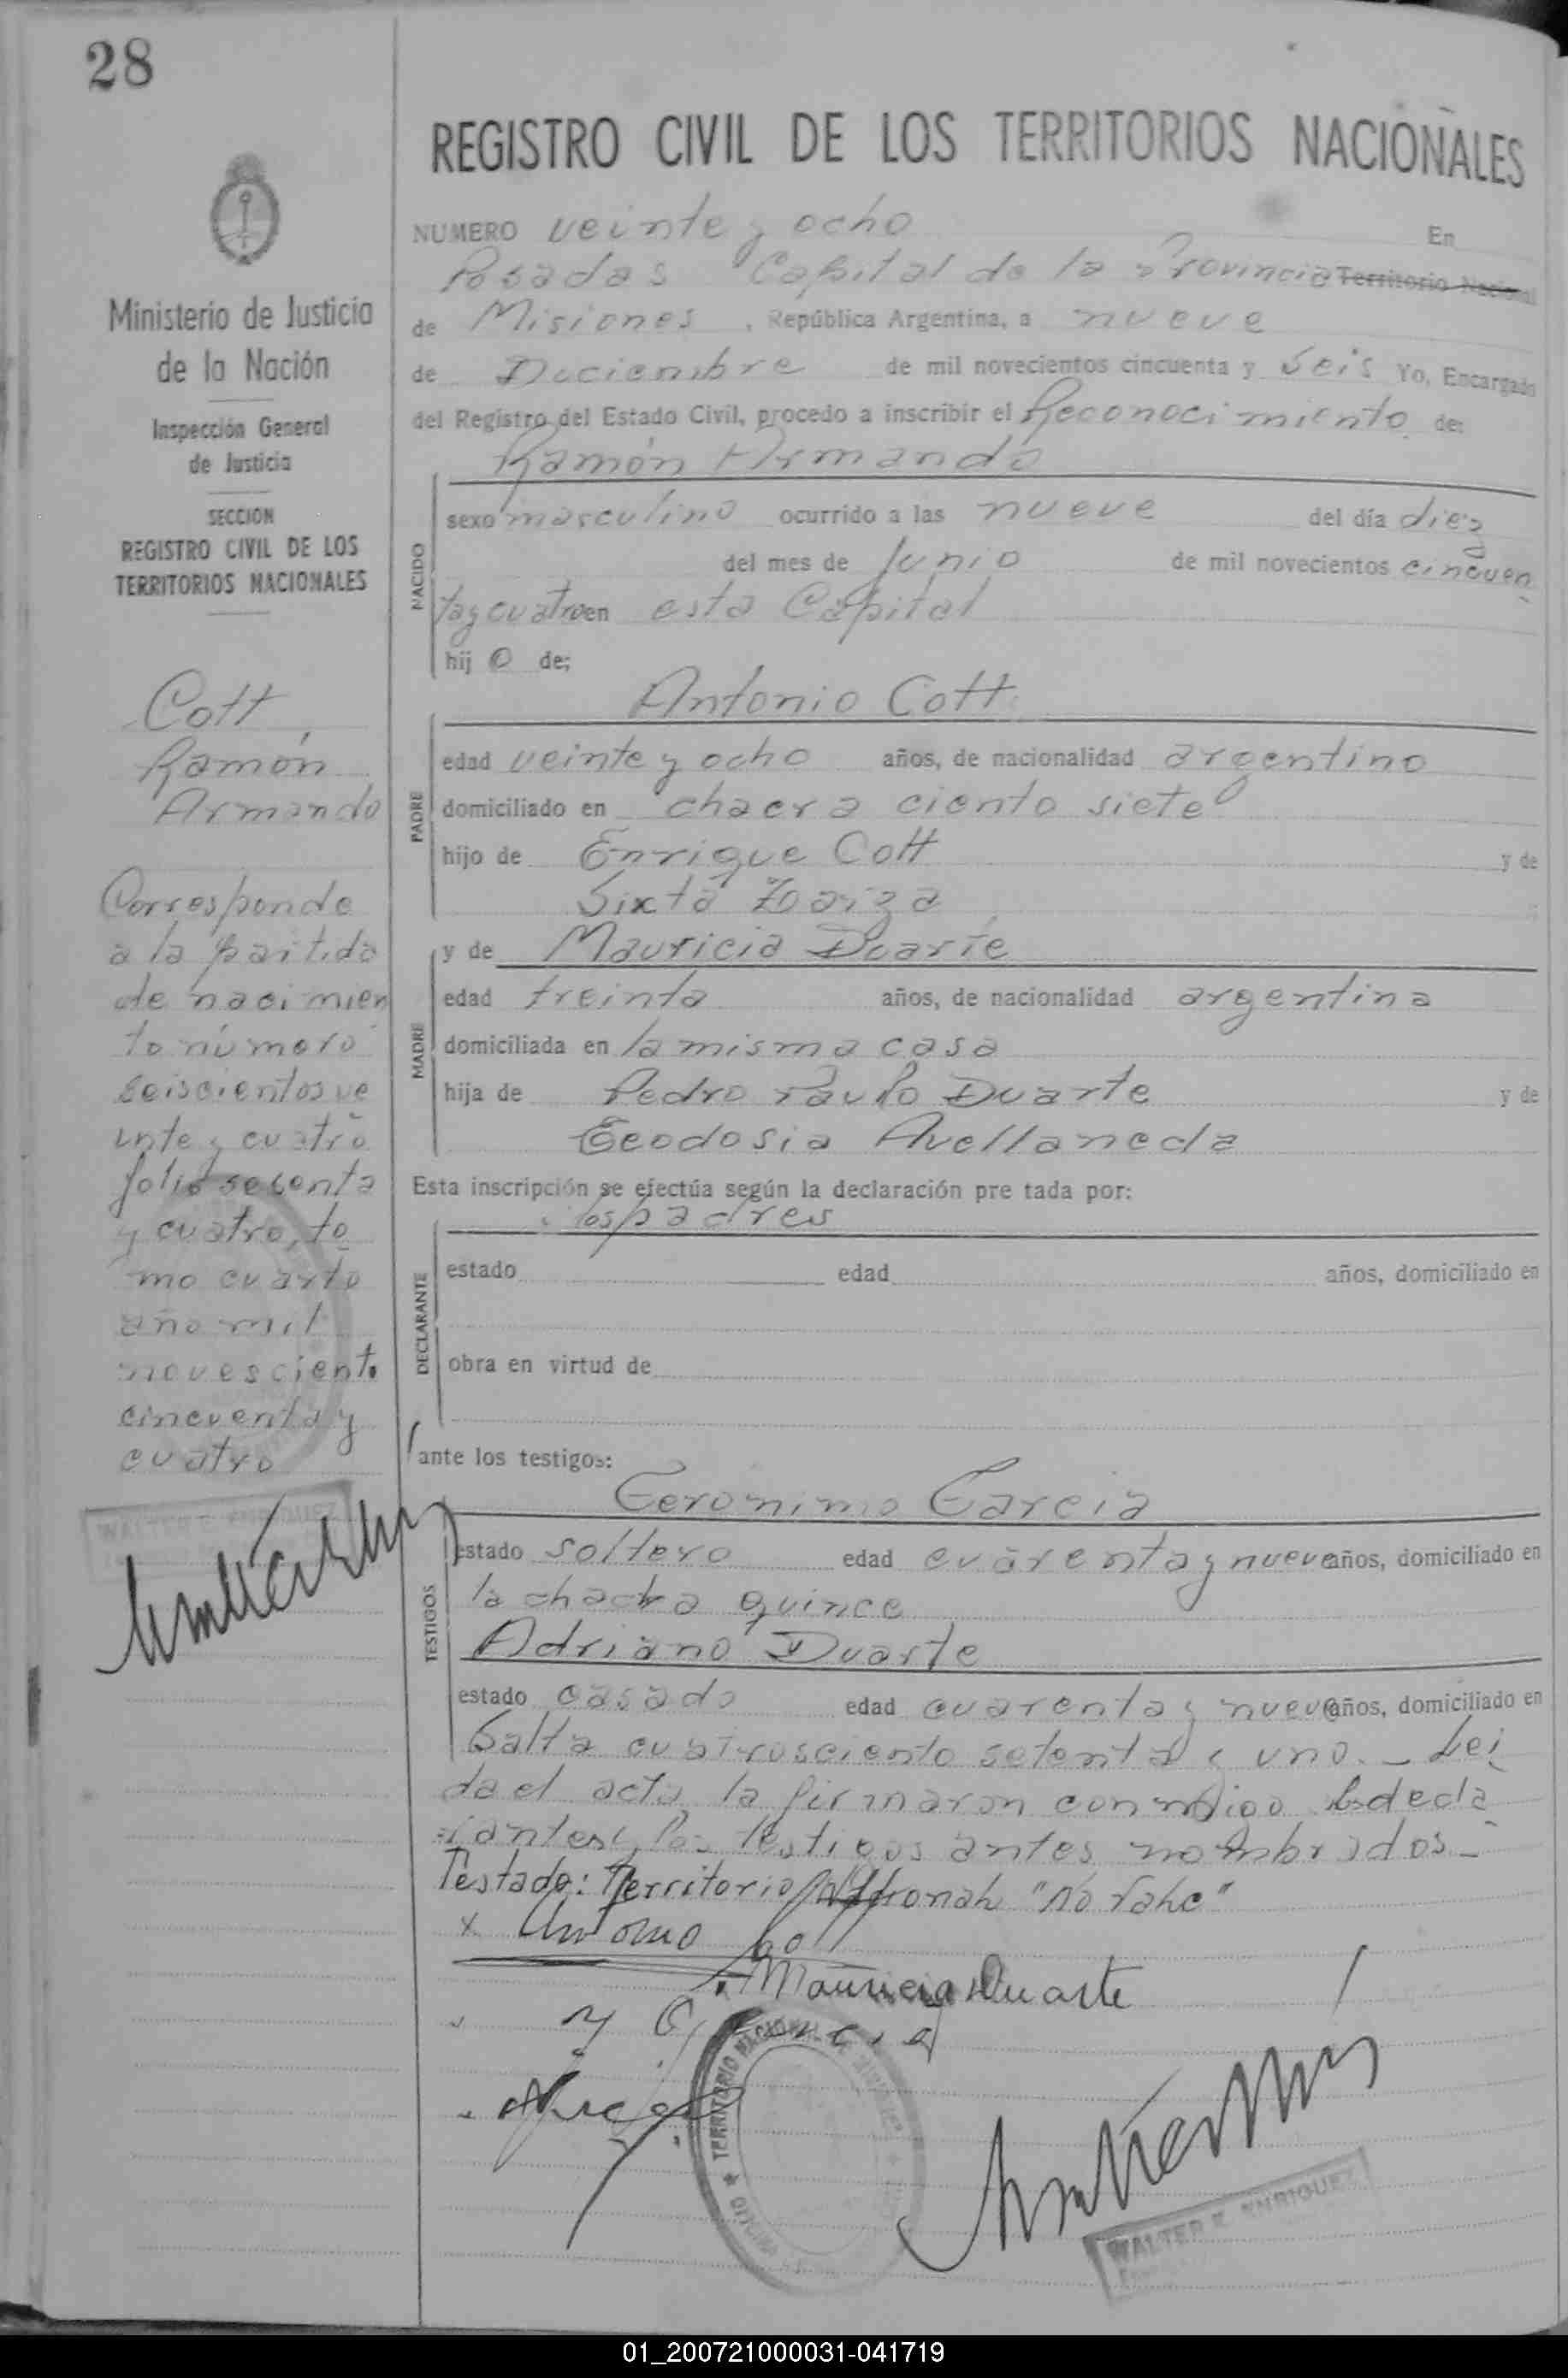 28
REGISTRO CIVIL DE LOS TERRITORIOS NACIONALES
NUMERO veinte y ocho En
Posadas Capital de la Provincia Territorio Nacional
de Misiones, República Argentina, a nueve
de Diciembre de mil novecientos cincuenta y seis Yo, Encargado
del Registro del Estado Civil, procedo a inscribir el Reconocimiento de:
Ramón Armando
NACIDO
sexo masculino ocurrido a las nueve del día diez
del mes de Junio de mil novecientos cincuen
ta y cuatro en esta Capital
hij o de;
Antonio Cott
PADRE
edad veinte y ocho años, de nacionalidad argentino
domiciliado en chacra ciento siete
hijo de Enrique Cott y de
Sixta
y de Mauricia Duarte
MADRE
edad treinta años, de nacionalidad argentina
domiciliada en la misma casa
hija de Pedro Paulo Duarte y de
Teodosia Avellaneda
Esta inscripción se efectúa según la declaración pre tada por:
los padres
DECLARANTE
estado edad años, domiciliado en
obra en virtud de
ante los testigos:
Gerónimo Garcia
TESTIGOS
estado soltero edad cuarenta y nueve años, domiciliado en
la chacra quince
Adriano Duarte
estado casado edad cuarenta y nueve años, domiciliado en
Salta cuatrosciento setenta y uno._ Lei
da el acta la firmaron conmigo los decla
rantes y los testigos antes nombrados._
Testado: Territorio Nacional "No vale"
x Antonio Cott
Mauricia Duarte
TERRITORIO NACIONAL DE MISIONES
OFICINA
WALTER E. ENRIQUEZ
Ministerio de Justicia
de la Nación
Inspección General
de Justicia
SECCION
REGISTRO CIVIL DE LOS
TERRITORIOS NACIONALES
Cott,
Ramón
Armando
Corresponde
a la partida
de nacimien
to número
seiscientos ve
inte y cuatro
folio sesenta
y cuatro, to
mo cuarto
año mil
novesciento
cincuenta y
cuatro
WALTER E. ENRIQUEZ
01_200721000031-041719